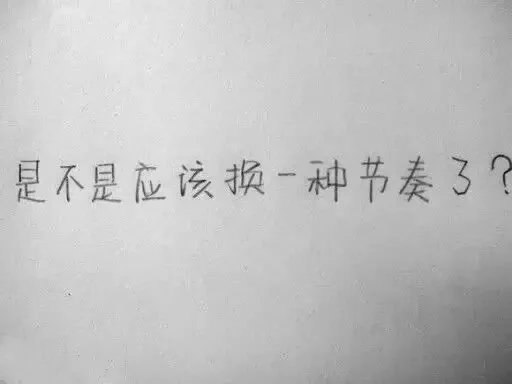 是不是应该损一种节奏了?